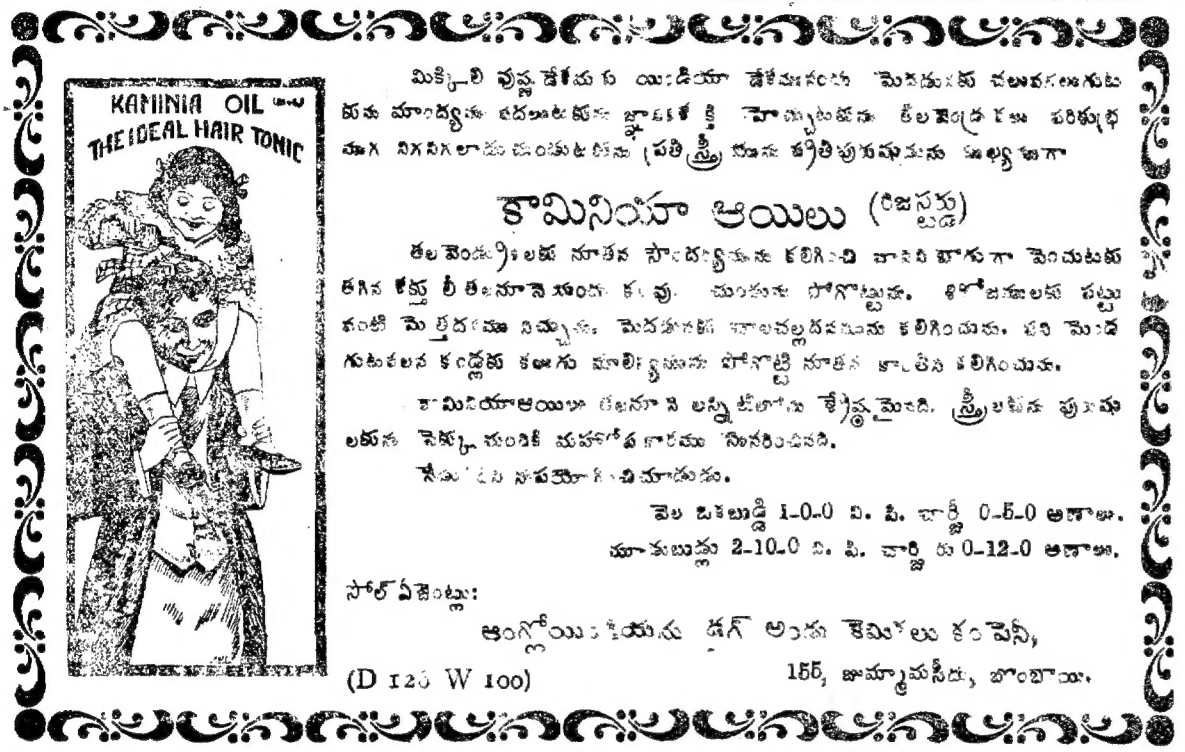 KAMINIA OIL
THE IDEAL HAIR TONIC
మిక్కిలి వుష్ణ దేశమకు యిండియా దేశమునందు మెదడునకు చలువకలుగుట
కును మాంద్యము వదలుటకును జ్ఞాపకశక్తి హెచ్చుటకును తలవెండ్రుకలు పరిశుభ్ర
ముగ నిగనిగలాడుచుండుటకును ప్రతి స్త్రీ యును ప్రతిపురుషుడును
కామినియా ఆయిలు (రిజస్టర్డు)
తలవెండ్రుకలకు నూతన సౌందర్యమును కలిగించి వానిని బాగుగా పెంచుటకు
తగిన శక్తు లీ తలనూనెయందు కలవు. చుండును పోగొట్టును. శిరోజములకు పట్టు
వంటి మెత్తదనము నిచ్చును. మెదడునకు చాలచల్లదనమును కలిగించును. పని
కండ్లకు కలుగు మాలిన్యమును పోగొట్టి నూతన కాంతిని కలిగించును.
కామినియాఆయిలు తలనూనె లన్నిటిలోను శ్రేష్ఠమైనది. స్త్రీలకును పురుషు
లకును మహోపకారము నొనరించినది.
నేడు దీని నుపయోగించిచూడుడు.
వెల ఒకబుడ్డి 1-0-0 వి. పి. చార్జీ 0-5-0 అణాలు.
మూడుబుడ్లు 2-10-0 వి. పి. చార్జి రు 0-12-0 అణాలు.
సోల్ ఏజెంట్లు:
ఆంగ్లోయిండియను డ్రగ్ అండు కెమికలు కంపెనీ,
155, జుమ్మామసీదు, బొంబాయి.
(D 126 W 100)